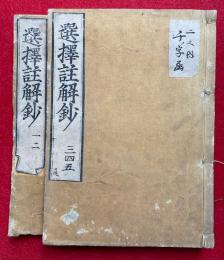 選擇註解鈔
三四五
尾
二久内
千字函
選擇註解鈔
一二